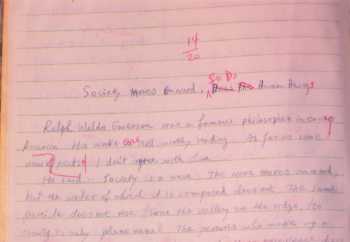 14
20
Society moves Onward, So Do Human Beings
Ralph Waldo Emerson was a famous philosopher in
America. He wrote and worthy reading. As far as
I don't agree with him.
He said, "Society is a wave. The wave moves onward,
but the water of which it is composed does not. The same
particle does not rise from the valley to the ridge. Its
unity is only phenomenal. The persons who make up a